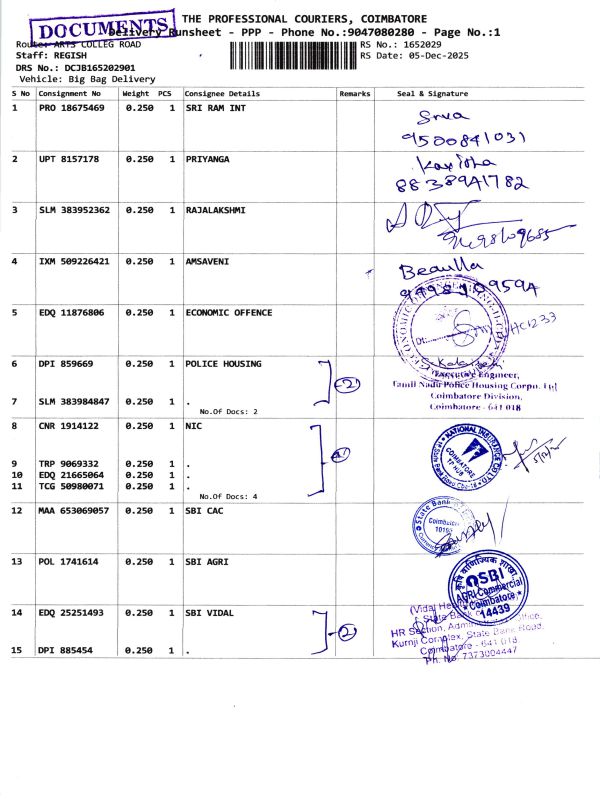 DOCUMENTS
THE PROFESSIONAL COURIERS, COIMBATORE
Delivery Runsheet - PPP - Phone No.:9047080280 - Page No.:1
Route: ARTS COLLEG ROAD
RS No.: 1652029
Staff: REGISH
RS Date: 05-Dec-2025
DRS No.: DCJB165202901
Vehicle: Big Bag Delivery
S No Consignment No Weight PCS Consignee Details Remarks Seal & Signature
1 PRO 18675469 0.250 1 SRI RAM INT
9500841031
2 UPT 8157178 0.250 1 PRIYANGA
8838941782
3 SLM 383952362 0.250 1 RAJALAKSHMI
4 IXM 509226421 0.250 1 AMSAVENI
Beaulla
5 EDQ 11876806 0.250 1 ECONOMIC OFFENCE
HC1233
6 DPI 859669 0.250 1 POLICE HOUSING
(2)
Executive Engineer,
Tamil Nadu Police Housing Corpn. Ltd
Coimbatore Division,
Coimbatore - 641 018
7 SLM 383984847 0.250 1 .
No.Of Docs: 2
8 CNR 1914122 0.250 1 NIC
NATIONAL INSURANCE CO LTD
COIMBATORE
9 TRP 9069332 0.250 1 .
10 EDQ 21665064 0.250 1 .
11 TCG 50980071 0.250 1 .
No.Of Docs: 4
12 MAA 653069057 0.250 1 SBI CAC
State Bank of
Coimbatore
13 POL 1741614 0.250 1 SBI AGRI
SBI
AGRI Commercial
Coimbatore
14439
14 EDQ 25251493 0.250 1 SBI VIDAL
(2)
HR Section,
Kurnji Complex, State Bank Road,
Coimbatore - 641 018
Ph. No. 7373004447
15 DPI 885454 0.250 1 .